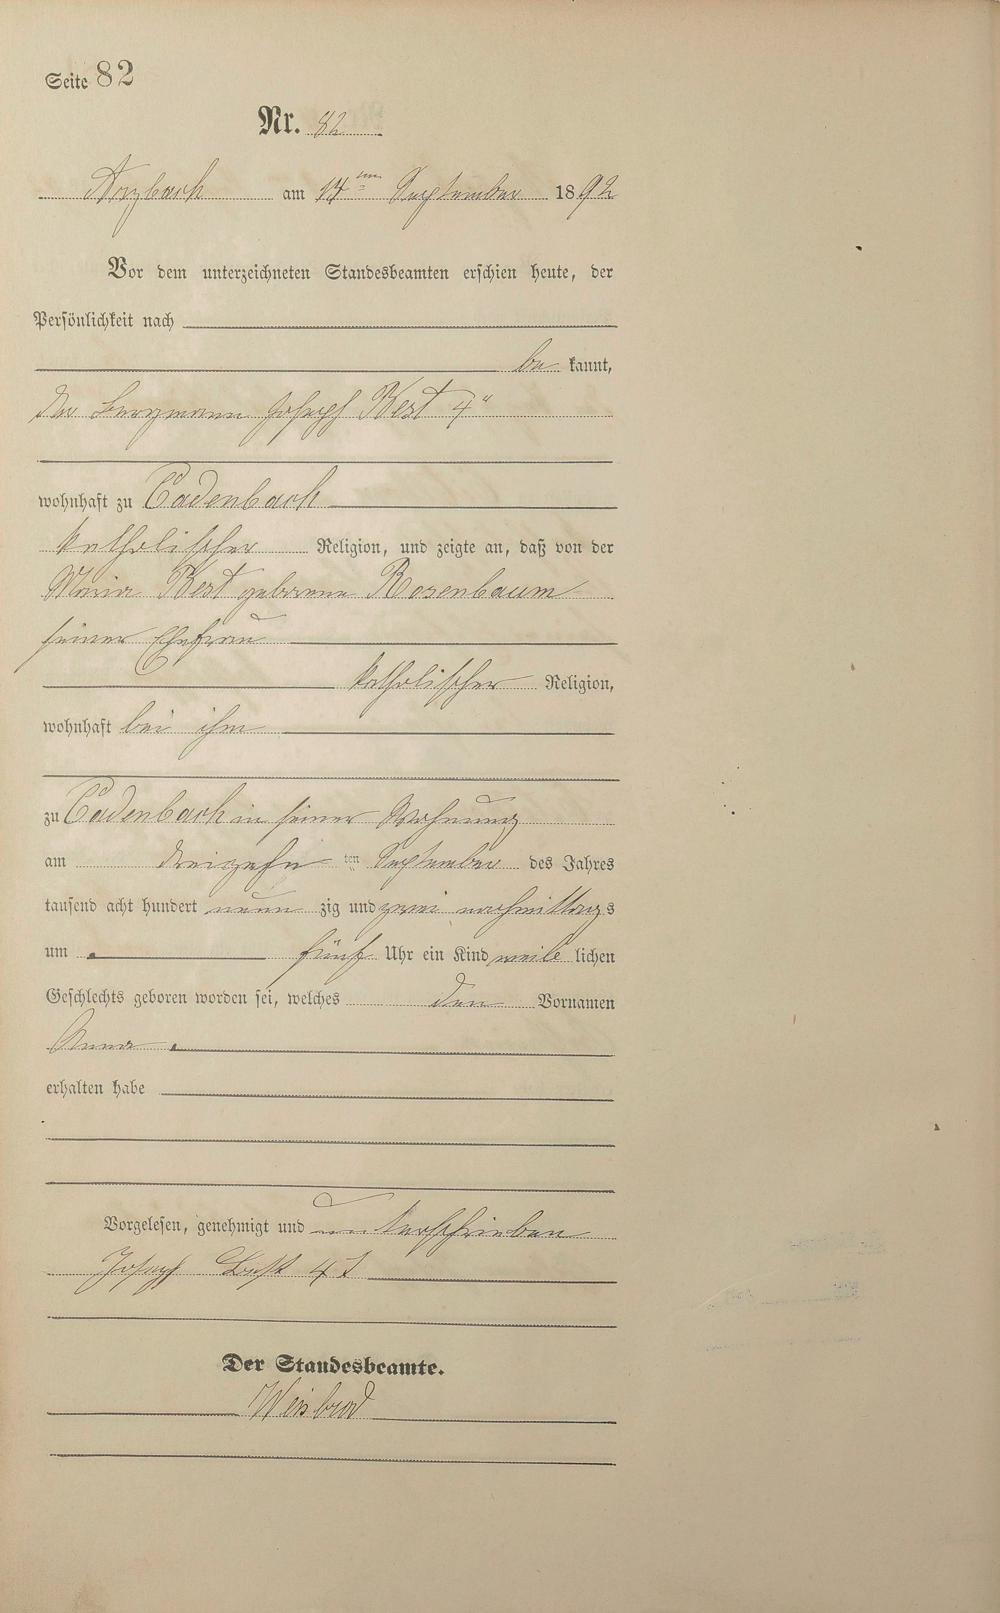 Seite 82
Nr. 82
Arzbach am 14ten September 1892
Vor dem unterzeichneten Standesbeamten erschien heute, der
Persönlichkeit nach
be kannt,
der Bergmann Joseph Best 4"
wohnhaft zu Cadenbach
katholischer Religion, und zeigte an, daß von der
Maria Best geborene Rosenbaum
seiner Ehefrau
katholischer Religion,
wohnhaft bei ihm
zu Cadenbach in seiner Wohnung
am dreizehn ten September des Jahres
tausend acht hundert neun zig und zwei nachmittags
um fünf Uhr ein Kind weib lichen
Geschlechts geboren worden sei, welches den Vornamen
Anna
erhalten habe
Vorgelesen, genehmigt und unterschrieben
Joseph Best 4
Der Standesbeamte.
Weisbrod